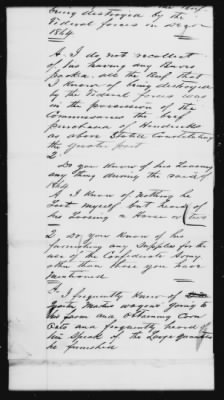 being destroyed by the
Federal forces in
1864
A. I do not recollect
of his having any
packed all the Beef that
I know of being destroyed
by the Federal force was
in the possession of the
Commissaries the beef
purchased of Hendricks
as above stated Constituting
the greater part
Q.
Do you know of his Loosing
any thing during the raid of
1864
A I know of nothing he
lost myself but heard of
his Loosing a Horse or two
Q. Do, you know of his
furnishing any Supplies for the
use of the Confederate Army
other than those you have
Mentioned
A. I frequently knew of
Quarter Master wagons going to
his farm and obtaining Corn
Oats and frequently heard of
him Speak of the Large quantities
he furnished